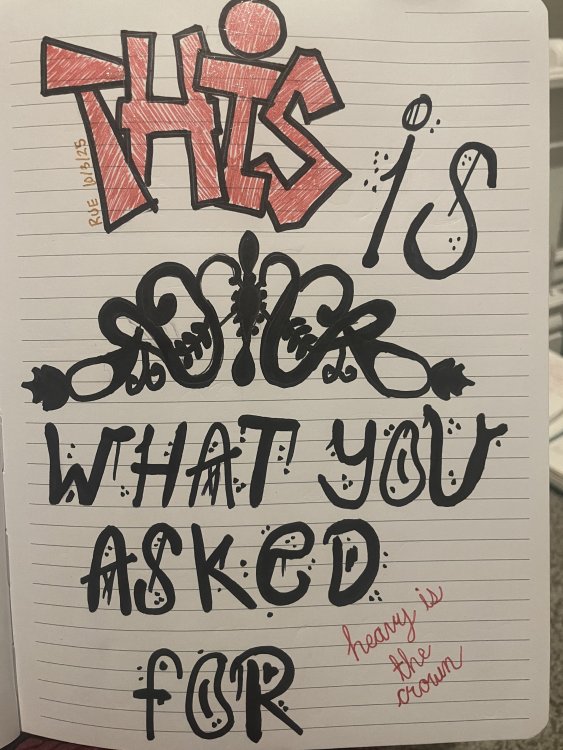 THIS
is
RUE 10/3/25
WHAT YOU
ASKED
FOR
heavy is
the
crown